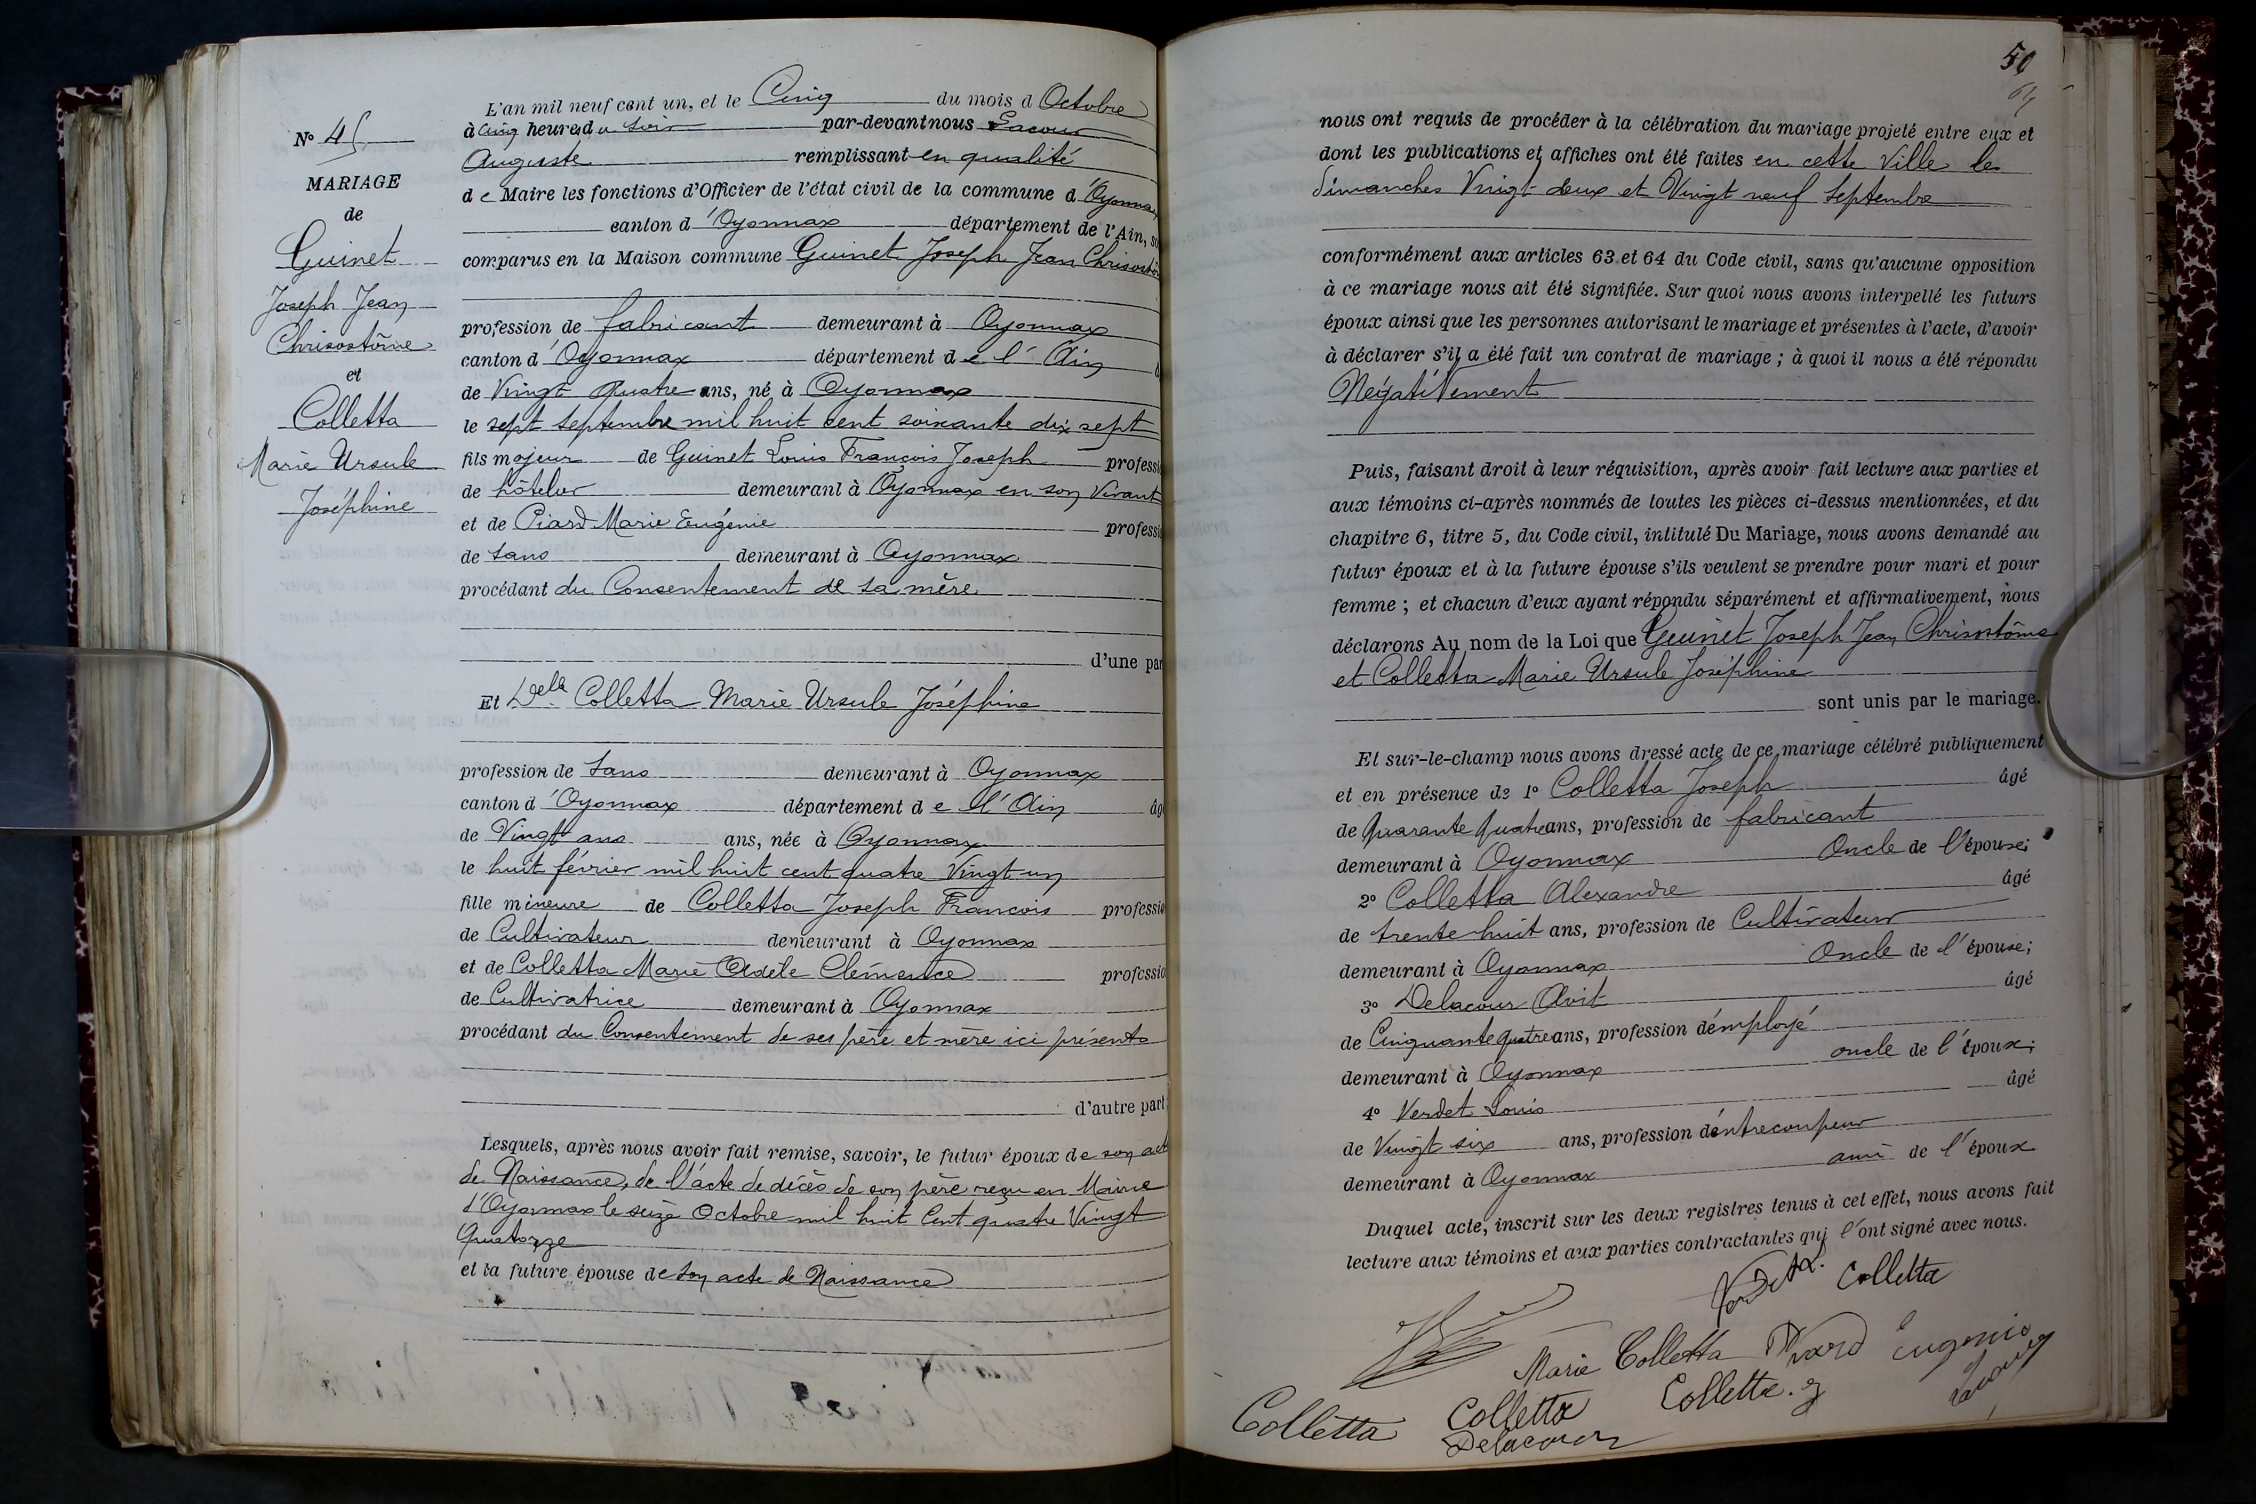 N° 45
MARIAGE
de
Guinet
Joseph Jean
Chrisostôme
et
Colletta
Marie Ursule
Joséphine
L'an mil neuf cent un, et le Cinq du mois d Octobre
à cinq heures du soir par-devant nous Lacour
Auguste remplissant en qualité
de Maire les fonctions d'Officier de l'état civil de la commune d'Oyonnax
canton d'Oyonnax département de l'Ain, so
comparus en la Maison commune Guinet Joseph Jean Chrisostô
profession de fabricant demeurant à Oyonnax
canton d'Oyonnax département de l'Ain
de Vingt Quatre ans, né à Oyonnax
le sept septembre mil huit cent soixante dix sept
fils majeur de Guinet Louis François Joseph professi
de hôtelier demeurant à Oyonnax en son vivant
et de Piard Marie Eugénie professi
de sans demeurant à Oyonnax
procédant du Consentement de sa mère
d'une par
Et Delle Colletta Marie Ursule Joséphine
profession de sans demeurant à Oyonnax
canton d'Oyonnax département de l'Ain âgé
de Vingt ans ans, née à Oyonnax
le huit février mil huit cent quatre Vingt un
fille mineure de Colletta Joseph François professio
de Cultivateur demeurant à Oyonnax
et de Colletta Marie Adèle Clémence professio
de Cultivatrice demeurant à Oyonnax
procédant du Consentement de ses père et mère ici présents
d'autre part
Lesquels, après nous avoir fait remise, savoir, le futur époux de son act
de Naissance, de l'acte de décès de son père reçu en Mairie
d'Oyonnax le seize Octobre mil huit Cent quatre Vingt
Quatorze
et la future épouse de son acte de Naissance
50
nous ont requis de procéder à la célébration du mariage projeté entre eux et
dont les publications et affiches ont été faites en cette Ville les
dimanches Vingt deux et Vingt neuf septembre
conformément aux articles 63 et 64 du Code civil, sans qu'aucune opposition
à ce mariage nous ait été signifiée. Sur quoi nous avons interpellé les futurs
époux ainsi que les personnes autorisant le mariage et présentes à l'acte, d'avoir
à déclarer s'il a été fait un contrat de mariage ; à quoi il nous a été répondu
Négativement
Puis, faisant droit à leur réquisition, après avoir fait lecture aux parties et
aux témoins ci-après nommés de toutes les pièces ci-dessus mentionnées, et du
chapitre 6, titre 5, du Code civil, intitulé Du Mariage, nous avons demandé au
futur époux et à la future épouse s'ils veulent se prendre pour mari et pour
femme ; et chacun d'eux ayant répondu séparément et affirmativement, nous
déclarons Au nom de la Loi que Guinet Joseph Jean Chrisostôme
et Colletta Marie Ursule Joséphine
sont unis par le mariage.
Et sur-le-champ nous avons dressé acte de ce mariage célébré publiquement
et en présence de 1° Colletta Joseph âgé
de Quarante Quatre ans, profession de fabricant
demeurant à Oyonnax Oncle de l'épouse;
2° Colletta Alexandre âgé
de trente huit ans, profession de Cultivateur
demeurant à Oyonnax Oncle de l'épouse;
3° Delacour Avit âgé
de Cinquante quatre ans, profession d'employé
demeurant à Oyonnax oncle de l'époux;
4° Verdet Louis âgé
de Vingt six ans, profession d'entrecoupeur
demeurant à Oyonnax ami de l'époux
Duquel acte, inscrit sur les deux registres tenus à cet effet, nous avons fait
lecture aux témoins et aux parties contractantes qui l'ont signé avec nous.
Colletta
Marie Colletta Piard Eugenie
Colletta Colletta Colletta. J
Delacour